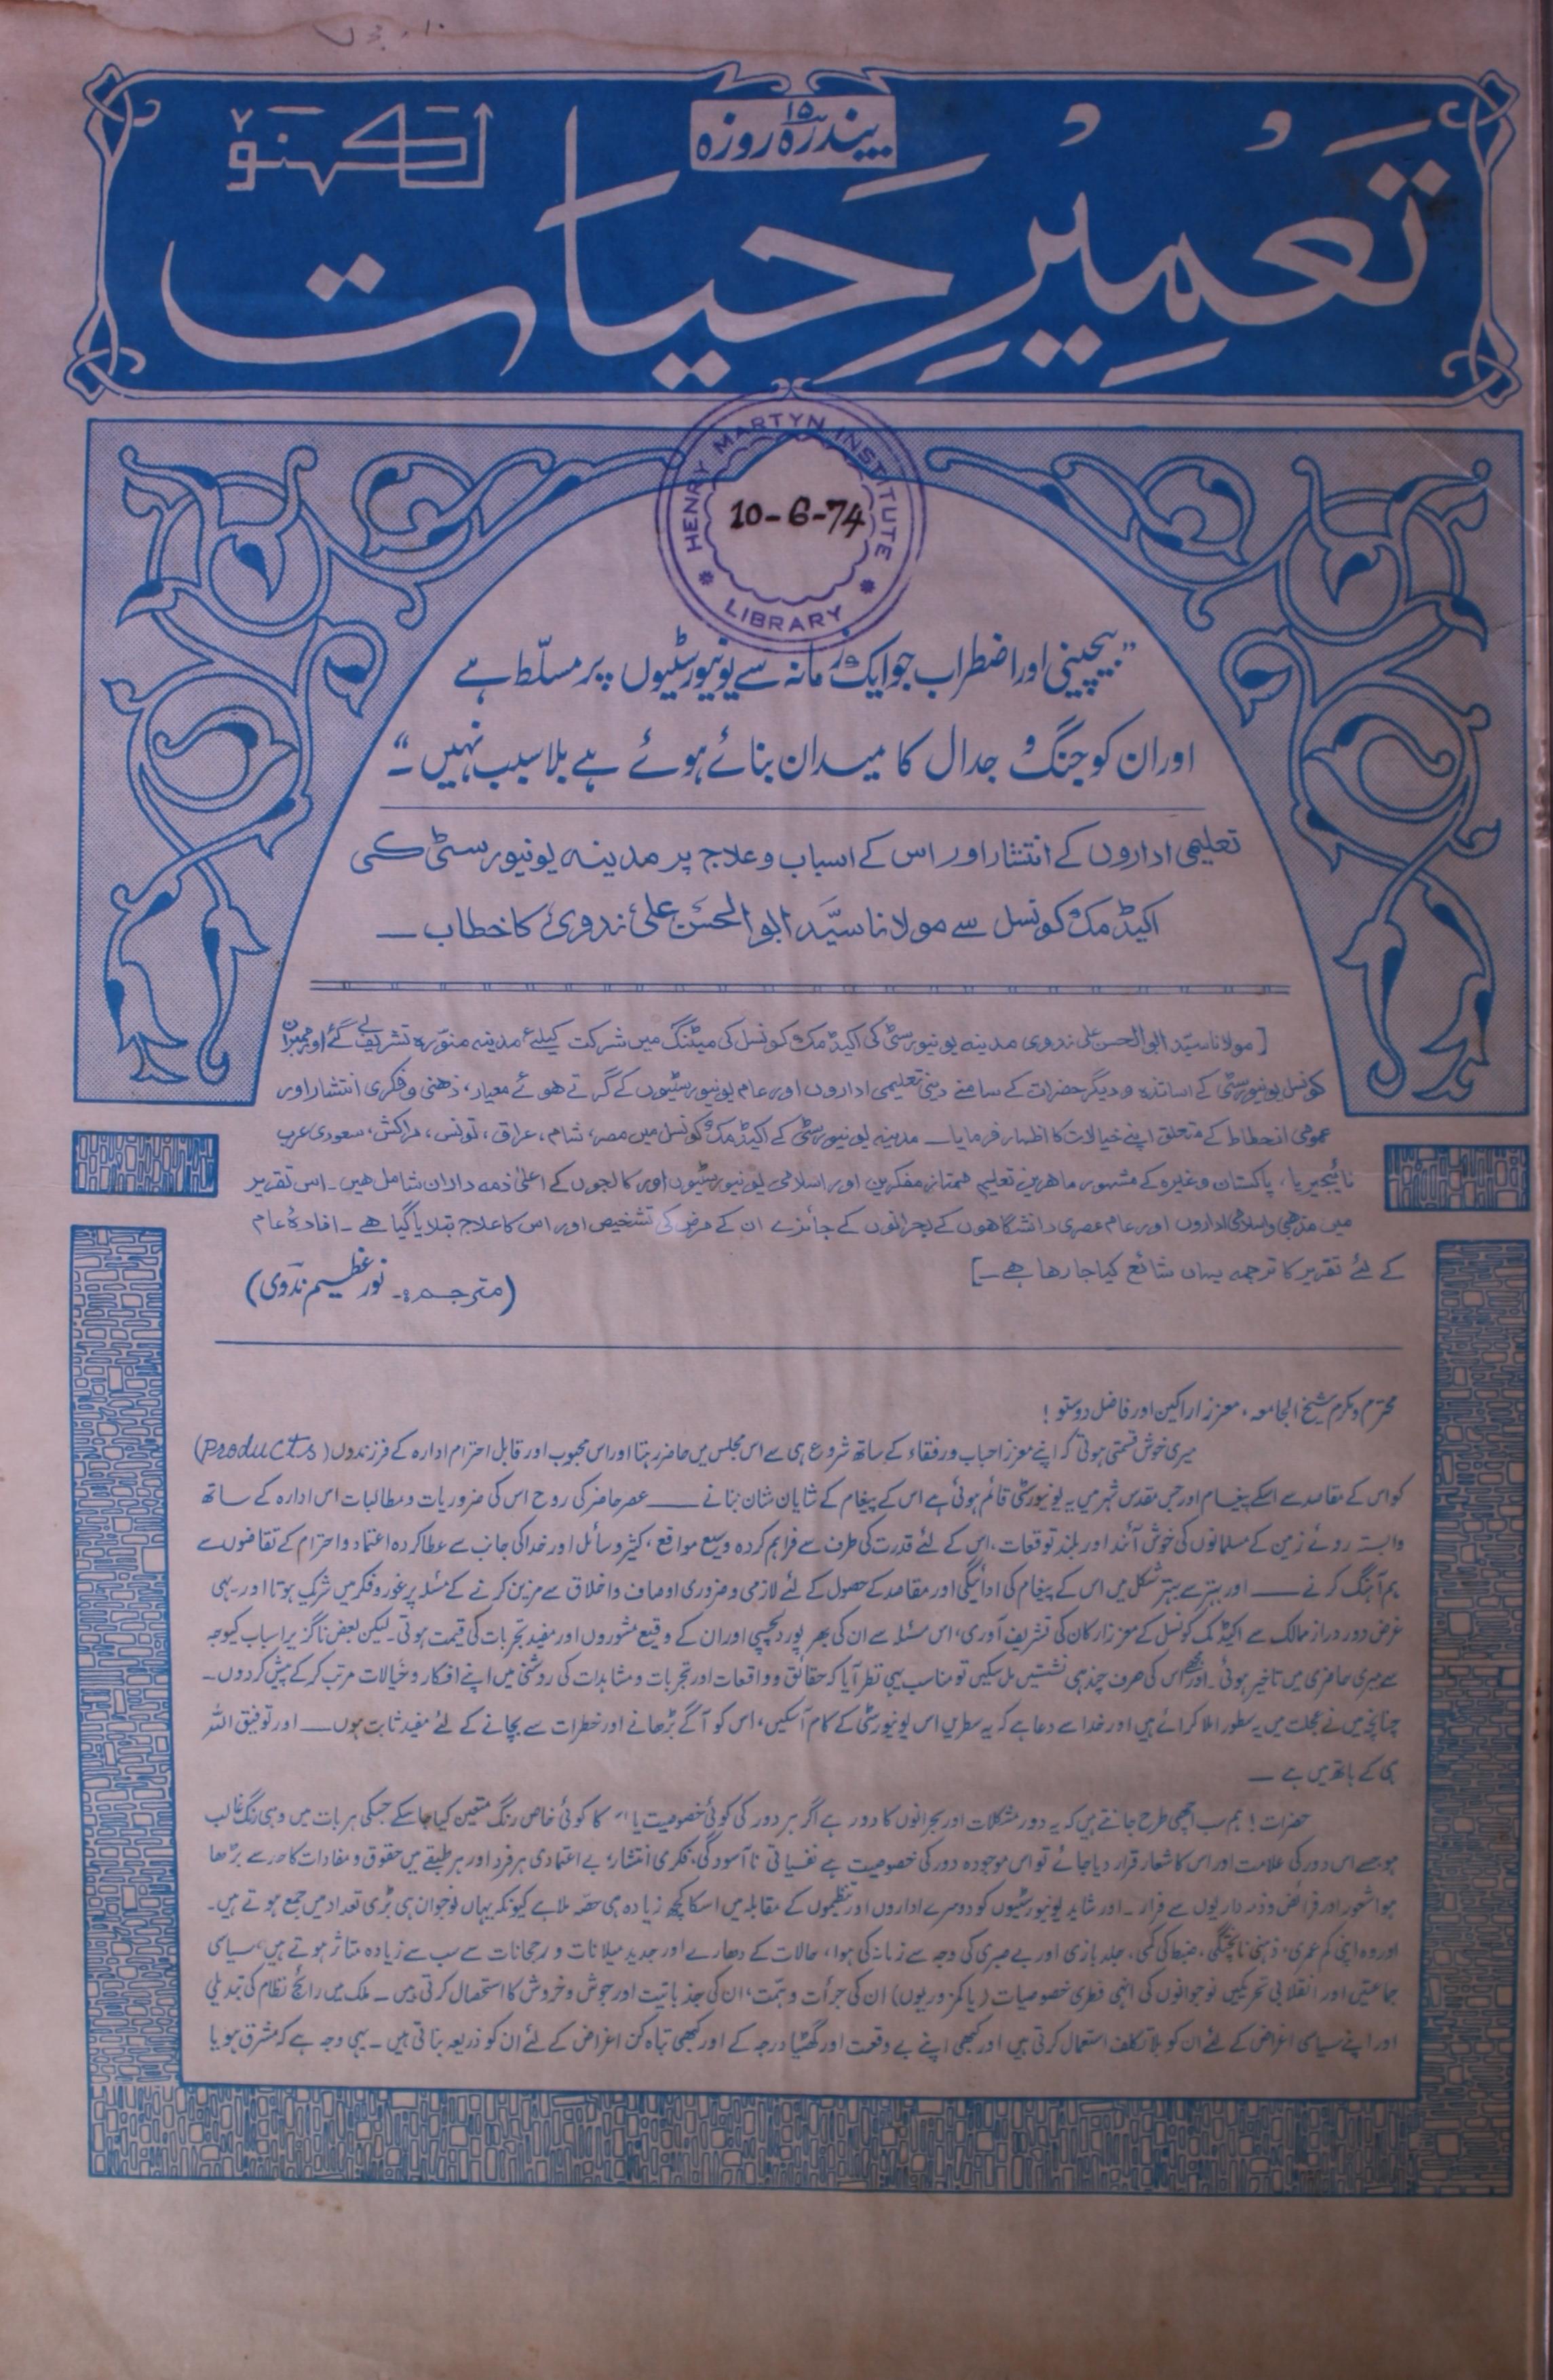 پندرہ ۱۵ روزہ
تعمیرِ حیات
لکھنؤ
HENRY MARTYN INSTITUTE
10-6-74
LIBRARY
"بیچینی اور اضطراب جو ایک زمانہ سے یونیورسٹیوں پر مسلّط ہے
اور ان کو جنگ و جدال کا میدان بنائے ہوئے ہے بلا سبب نہیں"۔
تعلیمی اداروں کے انتشار اور اس کے اسباب و علاج پر مدینہ یونیورسٹی کی
اکیڈمک کونسل سے مولانا سیّد ابوالحسن علی ندوی کا خطاب ــ
[مولانا سیّد ابوالحسن علی ندوی مدینہ یونیورسٹی کی اکیڈمک کونسل کی میٹنگ میں شرکت کیلئے مدینہ منوّرہ تشریف لے گئے اور ممبران
کونسل یونیورسٹی کے اساتذہ و دیگر حضرات کے سامنے دینی تعلیمی اداروں اور عام یونیورسٹیوں کے گرتے ہوئے معیار، ذہنی و فکری انتشار اور
عمومی انحطاط کے متعلق اپنے خیالات کا اظہار فرمایا۔ مدینہ یونیورسٹی کے اکیڈمک کونسل میں مصر، شام، عراق، تونس، مراکش، سعودی عرب
نائیجیریا، پاکستان وغیرہ کے مشہور ماہرین تعلیم ممتاز مفکرین اور اسلامی یونیورسٹیوں اور کالجوں کے اعلیٰ ذمہ داران شامل ہیں۔ اس تقریر
میں مذہبی و اسلامی اداروں اور عام عصری دانشگاہوں کے بحرانوں کے جائزے ان کے مرض کی تشخیص اور اس کا علاج بتلایا گیا ہے۔ افادۂ عام
کے لئے تقریر کا ترجمہ یہاں شائع کیا جا رہا ہے۔]
(مترجم:۔ نور عظیم ندوی)
محترم و مکرم شیخ الجامعہ، معزز اراکین اور فاضل دوستو!
میری خوش قسمتی ہوتی کہ اپنے معزز احباب و رفقاء کے ساتھ شروع ہی سے اس مجلس میں حاضر رہتا اور اس محبوب اور قابل احترام ادارہ کے فرزندوں (Products)
کو اس کے مقاصد سے اسکے پیغام اور جس مقدس شہر میں یہ یونیورسٹی قائم ہوئی ہے اس کے پیغام کے شایان شان بنانے ــ عصر حاضر کی روح اس کی ضروریات و مطالبات اس ادارہ کے ساتھ
وابستہ روئے زمین کے مسلمانوں کی خوش آئند اور بلند توقعات، اس کے لئے قدرت کی طرف سے فراہم کردہ وسیع مواقع، کثیر وسائل اور خدا کی جانب سے عطا کردہ اعتماد و احترام کے تقاضوں سے
ہم آہنگ کرنے ــ اور بہتر سے بہتر شکل میں اس کے پیغام کی ادائیگی اور مقاصد کے حصول کے لئے لازمی و ضروری اوصاف و اخلاق سے مزین کرنے کے مسئلہ پر غور و فکر میں شریک ہوتا اور یہی
غرض دور دراز ممالک سے اکیڈمک کونسل کے معزز ارکان کی تشریف آوری، اس مسئلہ سے ان کی بھرپور دلچسپی اور ان کے وقیع مشوروں اور مفید تجربات کی قیمت ہوتی۔ لیکن بعض ناگزیر اسباب کیوجہ
سے میری حاضری میں تاخیر ہوئی۔ اور مجھے اس کی صرف چند ہی نشستیں مل سکیں تو مناسب یہی نظر آیا کہ حقائق و واقعات اور تجربات و مشاہدات کی روشنی میں اپنے افکار و خیالات مرتب کر کے پیش کر دوں۔
چنانچہ میں نے عجلت میں یہ سطور املا کرائے ہیں اور خدا سے دعا ہے کہ یہ سطریں اس یونیورسٹی کے کام آ سکیں، اس کو آگے بڑھانے اور خطرات سے بچانے کے لئے مفید ثابت ہوں ــ اور توفیق اللہ
ہی کے ہاتھ میں ہے ــ
حضرات! ہم سب اچھی طرح جانتے ہیں کہ یہ دور مشکلات اور بحرانوں کا دور ہے اگر ہر دور کی کوئی خصوصیت یا اس کا کوئی خاص رنگ متعین کیا جا سکے جسکی ہر بات میں وہی رنگ غالب
ہو جسے اس دور کی علامت اور اس کا شعار قرار دیا جائے تو اس موجودہ دور کی خصوصیت ہے نفسیاتی ناآسودگی، فکری انتشار، بے اعتمادی ہر فرد اور ہر طبقے میں حقوق و مفادات کا حد سے بڑھا
ہوا شعور اور فرائض و ذمہ داریوں سے فرار۔ اور شاید یونیورسٹیوں کو دوسرے اداروں اور تنظیموں کے مقابلہ میں اسکا کچھ زیادہ ہی حصّہ ملا ہے کیونکہ یہاں نوجوان ہی بڑی تعداد میں جمع ہوتے ہیں۔
اور وہ اپنی کم عمری، ذہنی ناپختگی، ضبط کی کمی، جلد بازی اور بے صبری کی وجہ سے زمانہ کی ہوا، حالات کے دھارے اور جدید میلانات و رجحانات سے سب سے زیادہ متاثر ہوتے ہیں، سیاسی
جماعتیں اور انقلابی تحریکیں نوجوانوں کی انہی فطری خصوصیات (یا کمزوریوں) ان کی جرأت و ہمّت، ان کی جذباتیت اور جوش و خروش کا استحصال کرتی ہیں۔ ملک میں رائج نظام کی تبدیلی
اور اپنے سیاسی اغراض کے لئے ان کو بلا تکلف استعمال کرتی ہیں اور کبھی اپنے بے وقعت اور گھٹیا درجہ کے اور کبھی تباہ کن اغراض کے لئے ان کو ذریعہ بناتی ہیں۔ یہی وجہ ہے کہ مشرق ہو یا